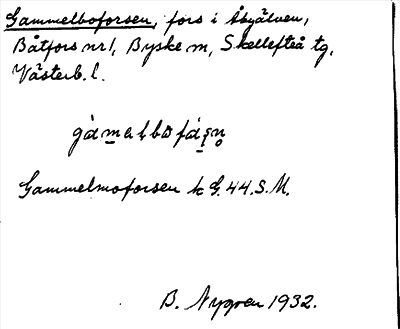 Gammelboforsen, fors i Åbyälven,
Båtfors nr 1, Byske sn, Skellefteå tg,
Västerb. l.
Gammelmoforsen k G. 44. S. M.
B. Nygren 1932.